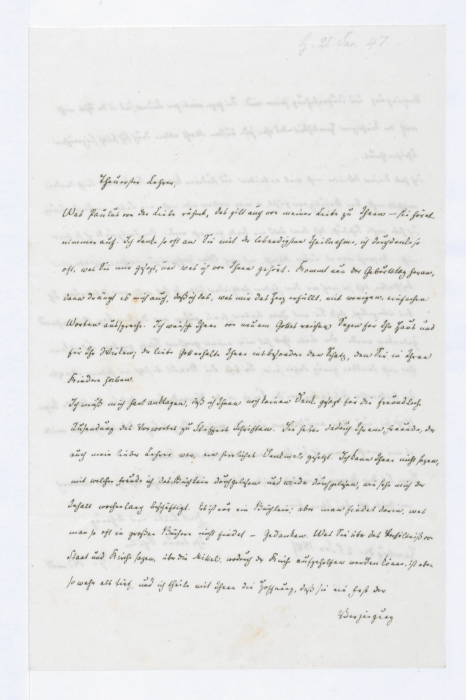 Theuerster Lehrer,
Was Paulus von der Liebe rühmt, das gilt auch von meiner Liebe zu Ihnen – sie höret
nimmer auf. Ich denke so oft an Sie mit der lebendigsten Theilnahme, ich durchdenke so
oft, was Sie mir gesagt, und was ich von Ihnen gehört. Kommt nun der Geburtstag heran,
dann drängt es mich auch, daß ich das, was mir das Herz erfüllt, mit wenigen, einfachen
Worten ausspreche. Ich wünsche Ihnen von neuem Gottes reichen Segen für Ihr Haus und
für Ihr Wirken; der liebe Gott erhalte Ihnen insbesondere den Schatz, den Sie in Ihren
Kindern haben.
Ich muß mich hart anklagen, daß ich Ihnen noch keinen Dank gesagt für die freundliche
Zusendung des Vorwortes zu Steffens Schriften. Sie haben dadurch Ihrem Freunde, der
auch mein lieber Lehrer war, ein herrliches Denkmal gesetzt. Ich kann Ihnen nicht sagen,
mit welcher Freude ich das Büchlein durchgelesen und wieder durchgelesen, wie sehr mich der
Inhalt wochenlang beschäftigt. Es ist nur ein Büchlein; aber man findet darin, was
man so oft in großen Büchern nicht findet – Gedanken. Was Sie über das Verhältniß von
Staat und Kirche sagen, über die Mittel, wodurch der Kirche aufgeholfen werden könne, ist eben
so wahr als tief, und ich theile mit Ihnen die Hoffnung, daß sie ein Fest der
Verjüngung